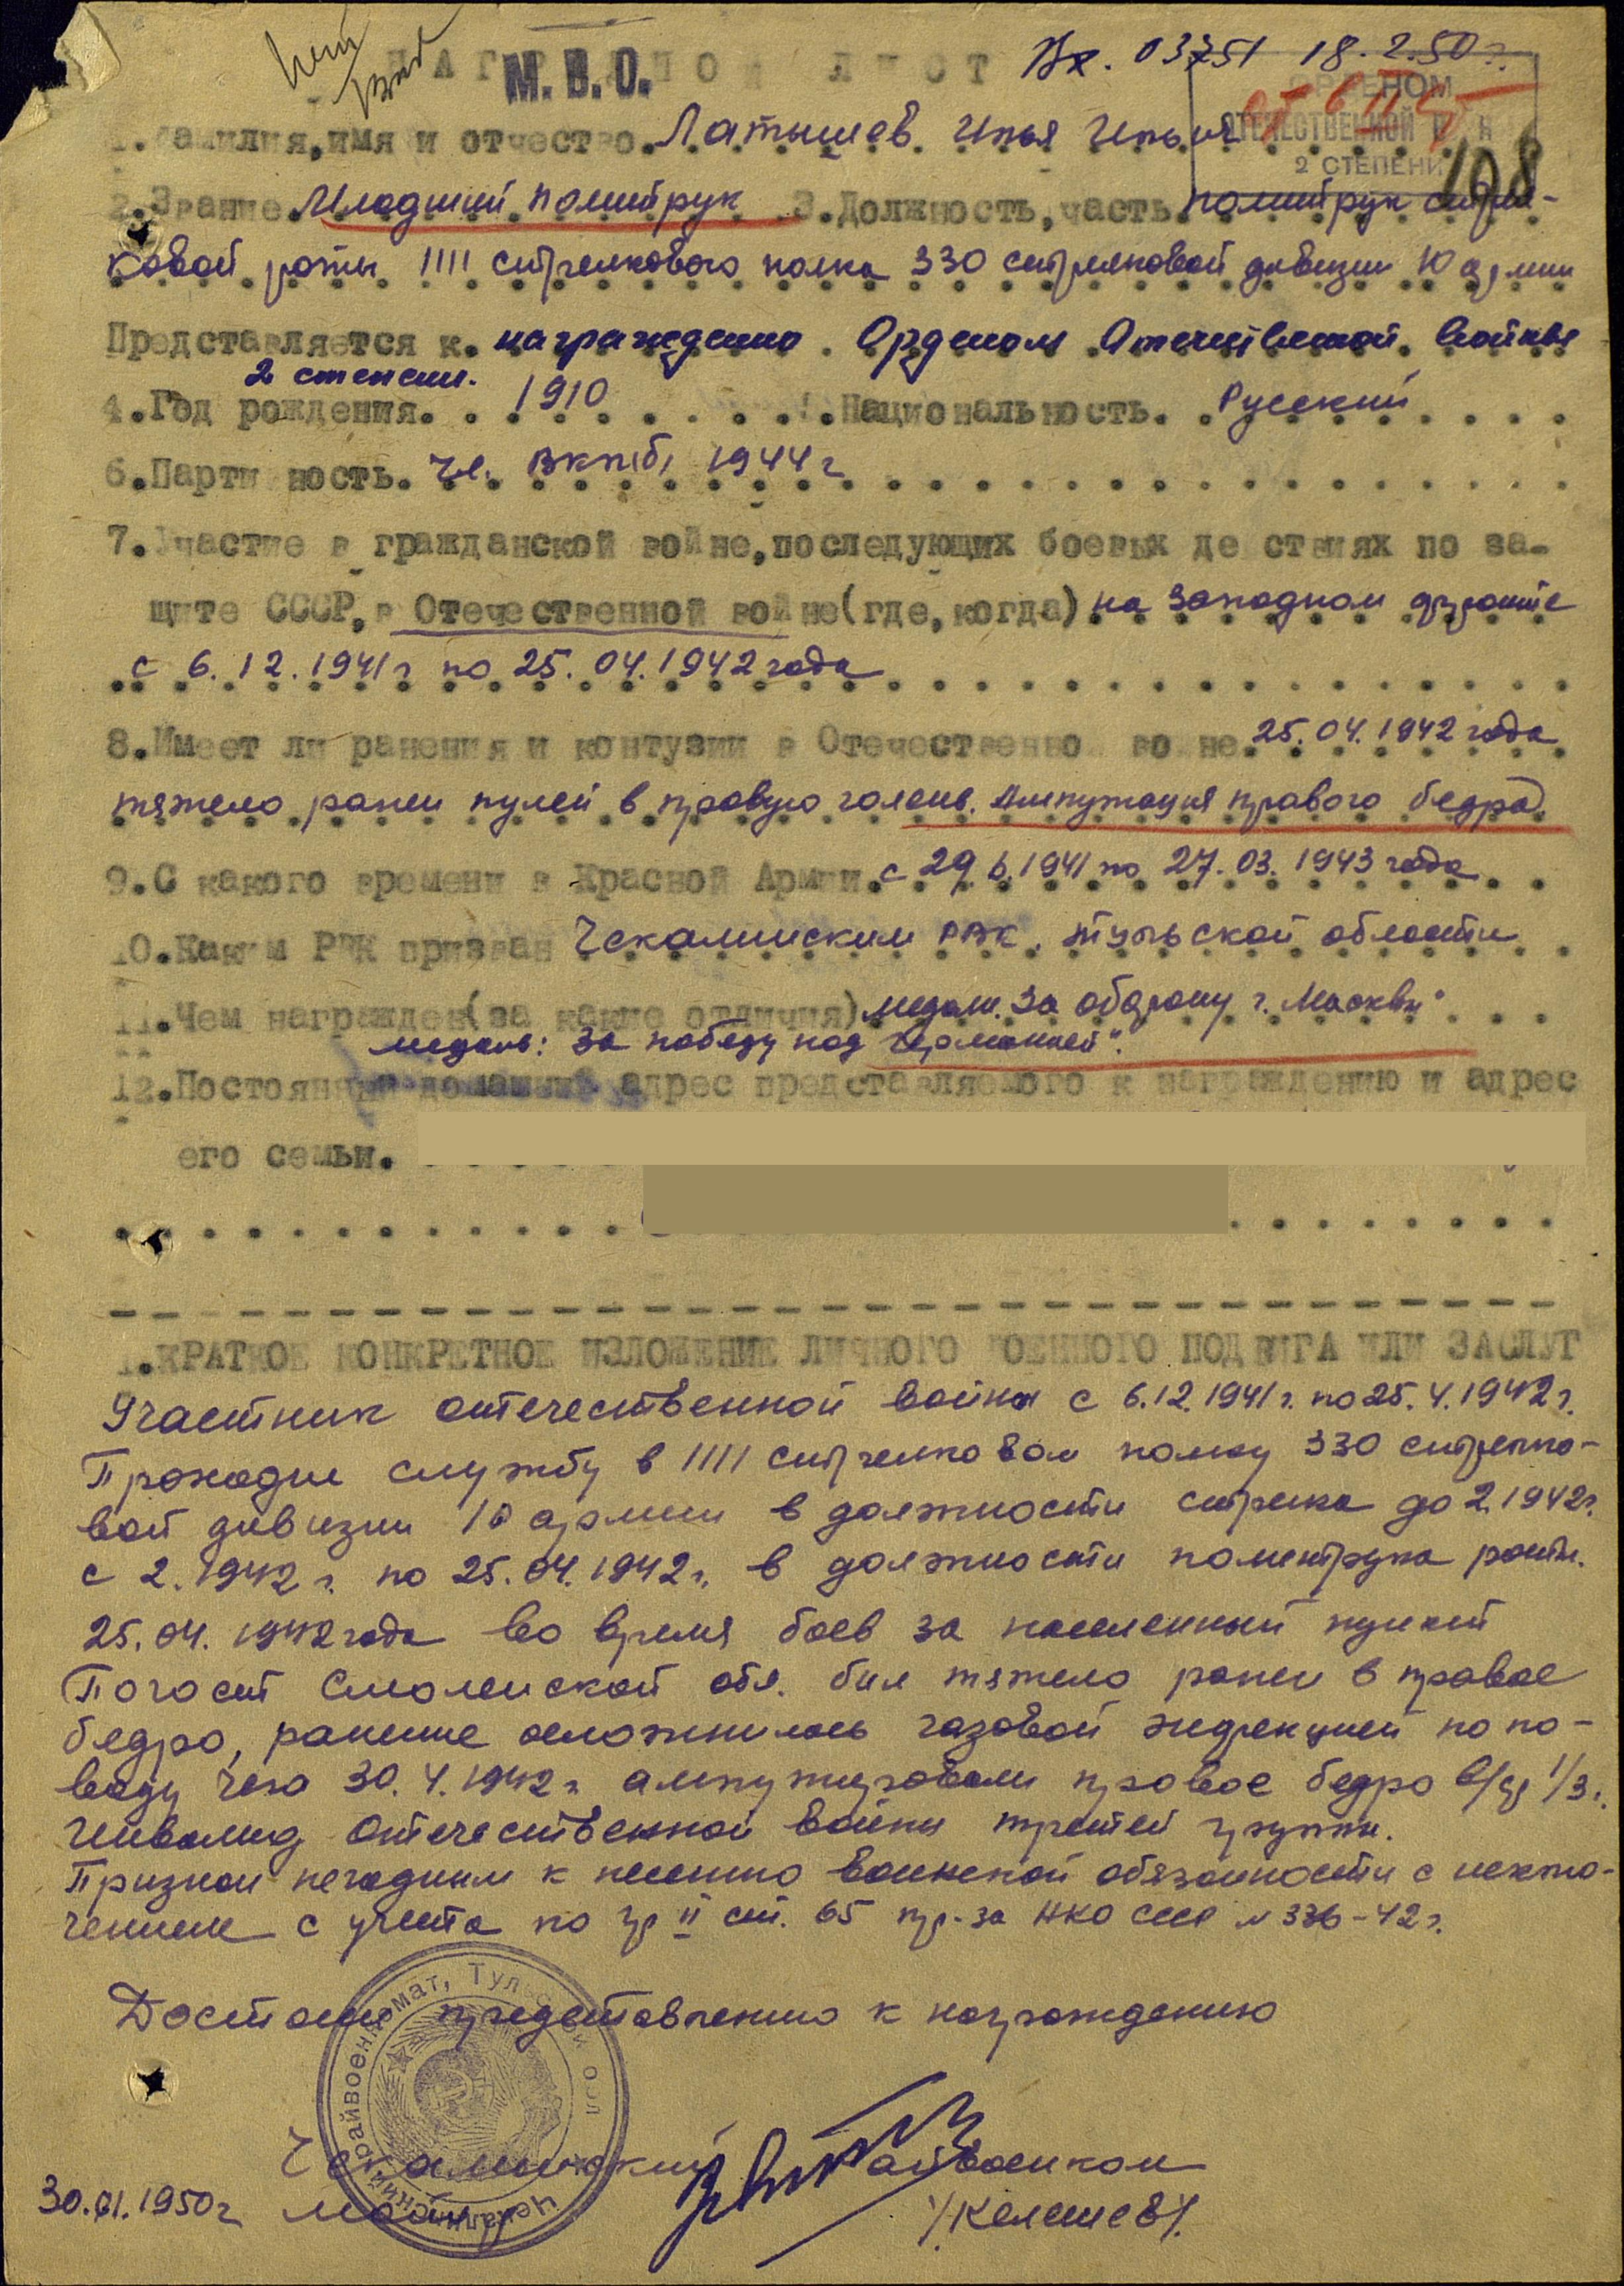 НАГРАДНОЙ ЛИСТ
М.В.О.
Вх. 03751 18.2.50 г.
ОРДЕНОМ
ОТЕЧЕСТВЕННОЙ
2 СТЕПЕНИ
108
1.Фамилия,имя и отчество. Латышев Илья Ильич
2.Звание. Младший политрук 3.Должность,часть. политрук стрел-
ковой роты 1111 стрелкового полка 330 стрелковой дивизии 10 армии
Представляется к. награждению Орденом Отечественной войны
2 степени.
4.Год рождения. 1910 Национальность. Русский
6.Партийность. Чл. ВКП(б) 1944 г
7.Участие в гражданской войне,последующих боевых действиях по за-
щите СССР,в Отечественной войне(где,когда) на Западном фронте
с 6.12.1941 г по 25.04.1942 года
8.Имеет ли ранения и контузии в Отечественной войне. 25.04.1942 года
тяжело ранен пулей в правую голень. Ампутация правого бедра.
9.С какого времени в Красной Армии. с 29.6.1941 по 27.03.1943 года
10.Каким РВК призван Чекалинским РВК, Тульской области
11.Чем награжден(за какие отличия) медаль. За оборону г. Москвы"
медаль: За победу над Германией".
12.Постоянный домашний адрес представляемого к награждению и адрес
его семьи.
1.КРАТКОЕ КОНКРЕТНОЕ ИЗЛОЖЕНИЕ ЛИЧНОГО ВОЕННОГО ПОДВИГА ИЛИ ЗАСЛУГ
Участник отечественной войны с 6.12.1941 г. по 25.4.1942 г.
Проходил службу в 1111 стрелковом полку 330 стрелко-
вой дивизии 10 армии в должности стрелка до 2.1942 г.
с 2.1942 г. по 25.04.1942 г. в должности политрука роты.
25.04.1942 года во время боев за населенный пункт
Погост Смоленской обл. был тяжело ранен в правое
бедро, ранение осложнилось газовой инфекцией по по-
воду чего 30.4.1942 г. ампутировали правое бедро 1/3.
Инвалид отечественной войны третей группы.
Признан негодным к несению воинской обязанности с исклю-
чением с учета по гр II ст. 65 пр-за НКО СССР № 336-42 г.
Достоин представлению к награждению
Чекалинский райвоенкомат, Тульской обл
Чекалинский Райвоенком
30.01.1950 г майор /Келешев/.